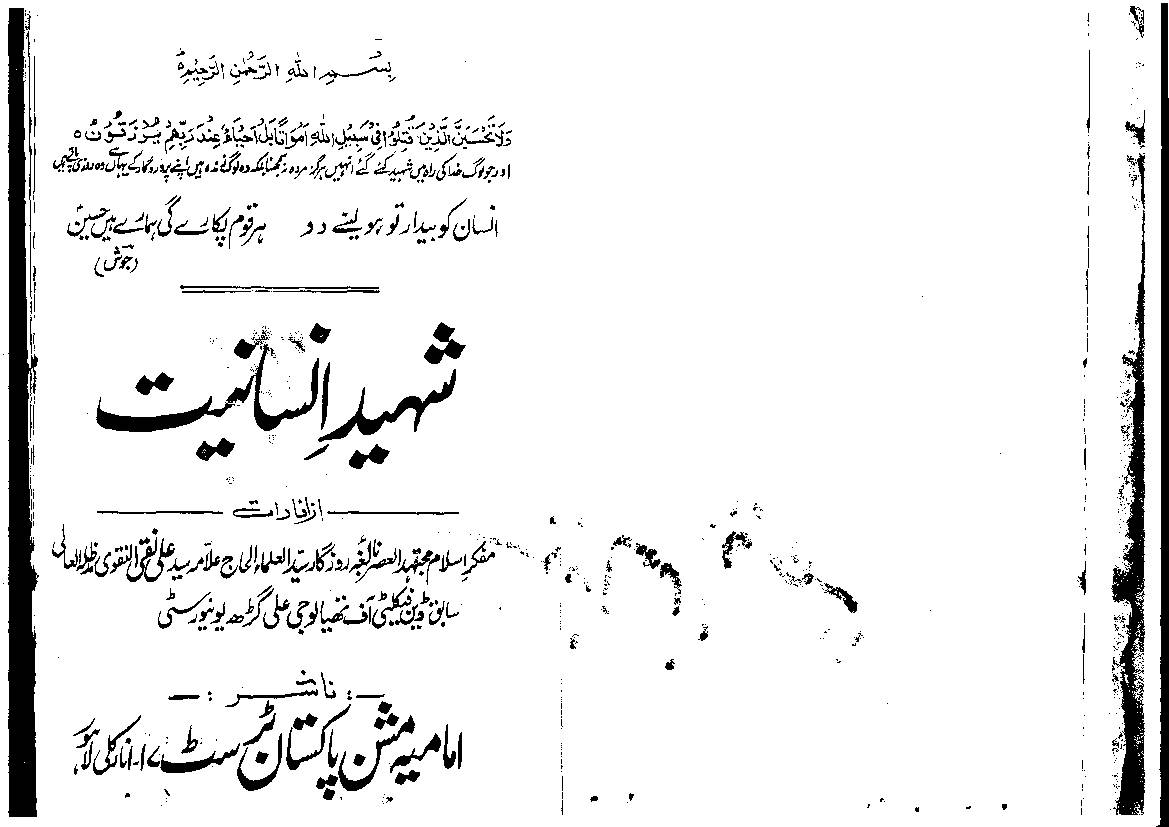 بِسْمِ اللهِ الرَّحْمٰنِ الرَّحِيْمِ ہ
وَلَا تَحْسَبَنَّ الَّذِيْنَ قُتِلُوْا فِيْ سَبِيْلِ اللهِ اَمْوَاتًا بَلْ اَحْيَاءٌ عِنْدَ رَبِّهِمْ يُرْزَقُوْنَ ہ
اور جو لوگ خدا کی راہ میں شہید کئے گئے انہیں ہرگز مردہ نہ سمجھنا بلکہ وہ لوگ زندہ ہیں اپنے پروردگار کے یہاں سے وہ روزی پاتے ہیں
انسان کو بیدار تو ہو لینے دو ہر قوم پکارے گی ہمارے ہیں حسینؑ
(جوش)
شہیدِ اِنسانیت
از افادات
مفکرِ اسلام مجتہد العصر نابغہ روزگار سید العلماء الحاج علامہ سید علی نقی النقوی مدظلہ العالی
سابق ڈین فیکلٹی آف تھیالوجی علی گڑھ یونیورسٹی
ناشر :
امامیہ مشن پاکستان ٹرسٹ ۱۷-انارکلی لاہور